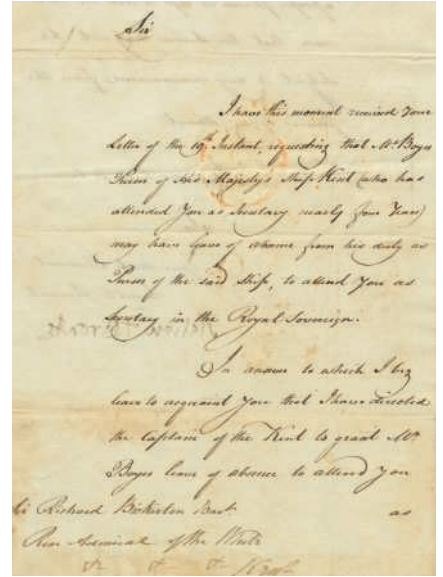 Sir
I have this moment received Your
Letter of the 19th Instant, requesting that Mr. Boyes
Purser of His Majesty's Ship Kent (who has
attended You as Secretary nearly four Years)
may have leave of absence from his duty as
Purser of the said Ship, to attend You as
Secretary in the Royal Sovereign.
In answer to which I beg
leave to acquaint You that I have directed
the Captain of the Kent to grant Mr
Boyes leave of absence to attend You
Sir Richard Bickerton Bart as
Rear Admiral of the White
&c &c &c